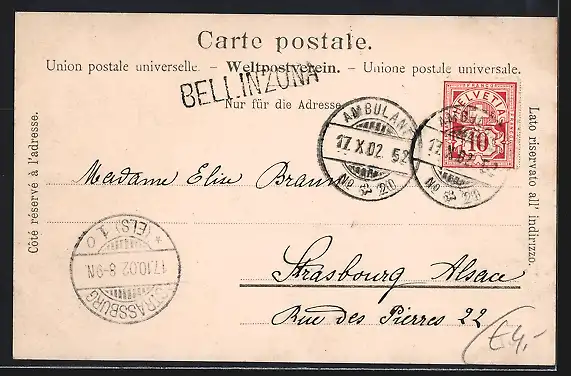 Carte postale.
Union postale universelle. – Weltpostverein. – Unione postale universale.
BELLINZONA
Nur für die Adresse.
Côté réservé à l'adresse.
Lato riservato all' indirizzo.
HELVETIA
10
AMBULANT
17.X.02 52
No 20
AMBULANT
17.X.02 52
No 20
Madame Elise Braun
Strasbourg Alsace
Rue des Pierres 22
STRASSBURG
17.10.02 8-9N
* (ELS) 1 o
€4,-